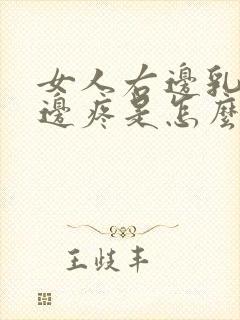 女人右邊乳
邊疼是怎麼
王歧丰